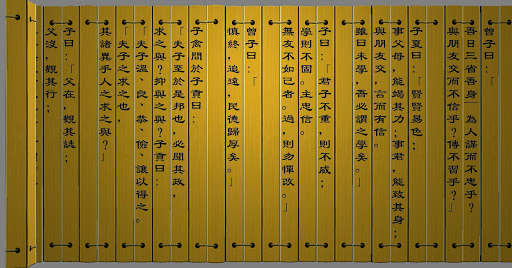 曾子曰:「
吾日三省吾身—為人謀而不忠乎?
與朋友交而不信乎?傳不習乎?」
子夏曰:「賢賢易色;
事父母,能竭其力;事君,能致其身;
與朋友交,言而有信。
雖曰未學,吾必謂之學矣。」
子曰:「君子不重,則不威;
學則不固。主忠信。
無友不如己者。過,則勿憚改。」
曾子曰:「
慎終,追遠,民德歸厚矣。」
子禽問於子貢曰:
「夫子至於是邦也,必聞其政,
求之與?抑與之與?」子貢曰:
「夫子溫、良、恭、儉、讓以得之。
「夫子之求之也,
其諸異乎人之求之與?」
子曰:「父在,觀其志;
父沒,觀其行;